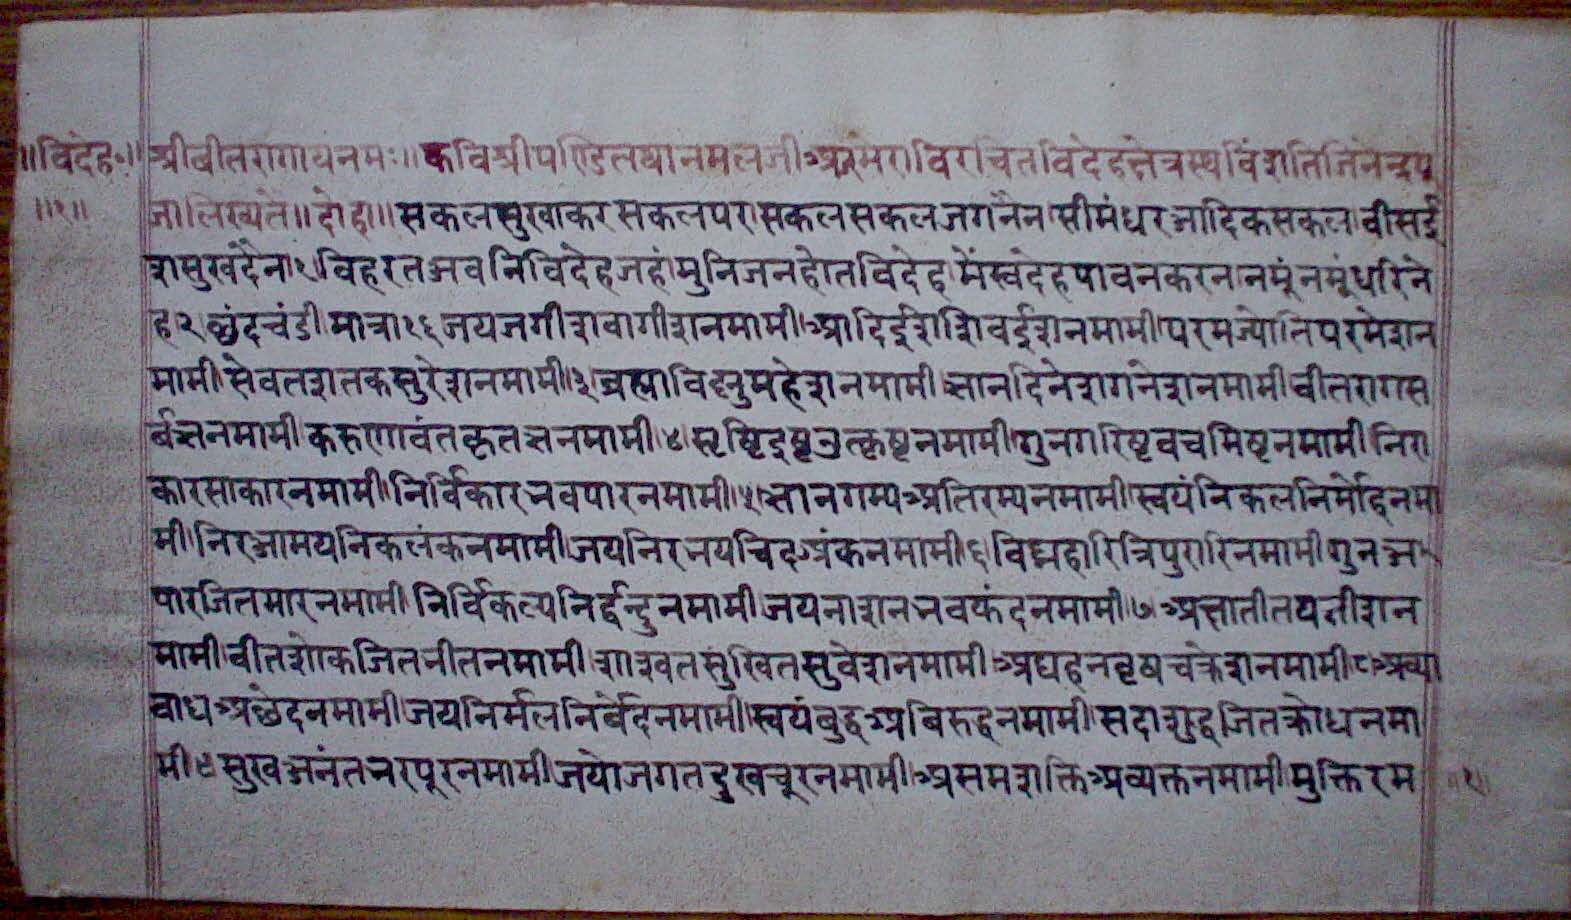 ॥विदेह॰॥ श्रीवीतरागायनमः॥ कविश्रीपण्डितथानमलजीअजमेराविरचितविदेहक्षेत्रस्थविंशतिजिनेन्द्रपू
॥१॥ जालिख्यते॥ दोहा॥ सकलसुखाकरसकलपर।सकलसकलजगनैन।सीमंधरआदिकसकल।वीसई
शसुखदैन।१।विहरतअवनिविदेहजहं।मुनिजनहोतविदेह।मेंस्वदेहपावनकरन।नमूंनमूंधरिने
ह।२।छंदचंडी।मात्रा१६।जयजगीशवागीशनमामी।आदिईशशिवईशनमामी।परमज्योतिपरमेशन
मामी।सेवतशतकसुरेशनमामी।३।ब्रह्माविष्नुमहेशनमामी।ज्ञानदिनेशगनेशनमामी।वीतरागस
र्वज्ञनमामी।करुणावंतकृतज्ञनमामी।४।सृष्टिइष्टउत्कृष्टनमामी।गुनगरिष्टवचमिष्टनमामी।निरा
कारसाकारनमामी।निर्विकारभवपारनमामी।५।ज्ञानगम्यअतिरम्यनमामी।स्वयंनिकलनिर्मोहनमा
मी।निरआमयनिकलंकनमामी।जयनिरभयचिदअंकनमामी।६।विघ्नहारित्रिपुरारिनमामी।गुनअ
पारजितमारनमामी।निर्विकल्पनिर्द्वन्दुनमामी।जयनाशनभवकंदनमामी।७।अक्षातीतयतीशन
मामी।वीतशोकजितभीतनमामी।शाश्वतसुखितसुवेशनमामी।अघहनवृषचक्रेशनमामी।८।अव्या
वाधअछेदनमामी।जयनिर्मलनिर्वेदनमामी।स्वयंबुद्धअबिरुद्धनमामी।सदाशुद्धजितक्रोधनमा
मी।९।सुखअनंतभरपूरनमामी।जयोजगतदुखचूरनमामी।असमशक्तिअव्यक्तनमामी।मुक्तिरम ॥१॥